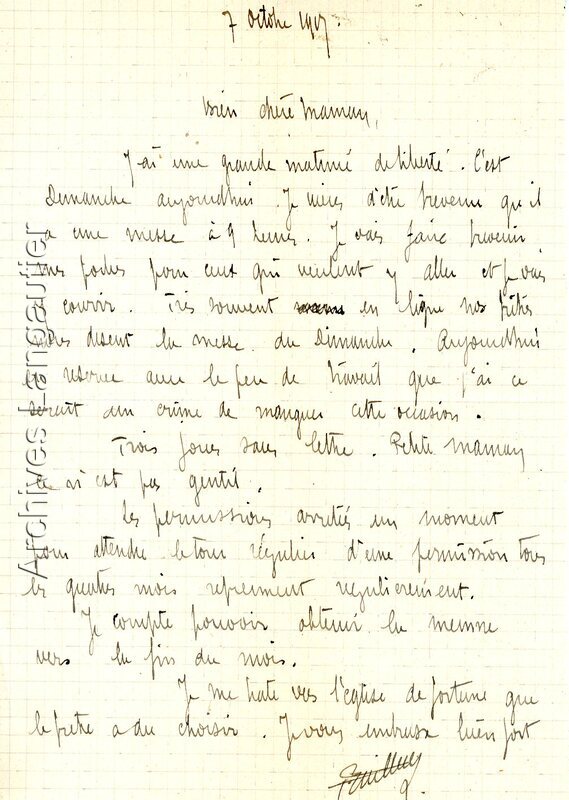 7 octobre 1917.
Bien chère Maman,
J'ai une grande matiné de liberté. C'est
Dimanche aujourdhui. Je viens d'etre prevenu qu'il
a une messe à 9 heures. Je vais faire prevenir
mes poches pour ceux qui veulent y aller et je vais
y courir. Très souvent en ligne nos prêtres
nous disent la messe du Dimanche. Aujourdhui
en réserve avec le peu de travail que j'ai ce
serait un crime de manquer cette occasion.
Trois jours sans lettre. Petite Maman
ce n'est pas gentil.
Les permissions arretiés un moment
pour attendre le tour régulier d'une permission tous
les quatres mois reprennent regulierement.
Je compte pouvoir obtenir la mienne
vers la fin du mois.
Je me hate vers l'église de fortune que
le prêtre a du choisir. Je vous embrasse bien fort
Archives Langautier